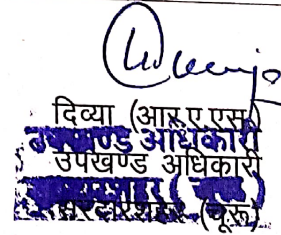 दिव्या (आर.ए.एस.)
उपखण्ड अधिकारी
उपखण्ड अधिकारी
सरदारशहर (चूरू)
सरदारशहर (चूरू)